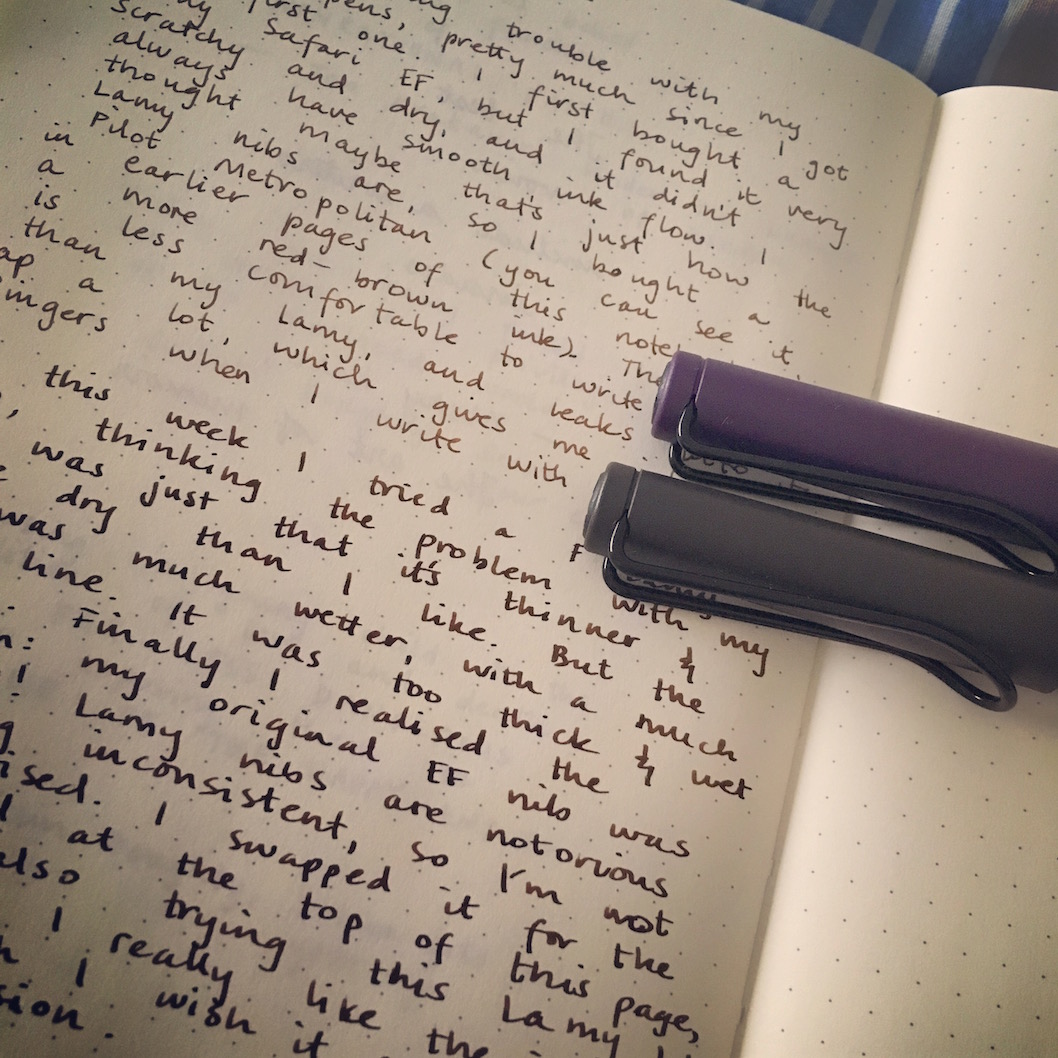 trouble with my
pens, pretty much since I got
my first one. I first bought a
Safari EF, but I found it very
scratchy and dry, and it didn't
always have smooth ink flow. I
thought maybe that's just how the
Lamy nibs are, so I bought a
Pilot Metropolitan (you can see it
in earlier pages of this
a more red-brown ink). The
is less comfortable to write
than my Lamy, and leaks
a lot, which gives me
fingers when I write with
this week I tried a F
thinking the problem with my
was just that it's thinner &
dry than I like. But the
was much wetter, with a much
line. It was too thick & wet
Finally I realised the
my original EF nib was
Lamy nibs are notorious
inconsistent, so I'm not
I swapped it for the
at the top of this page,
also trying this Lamy
I really like the
I wish it